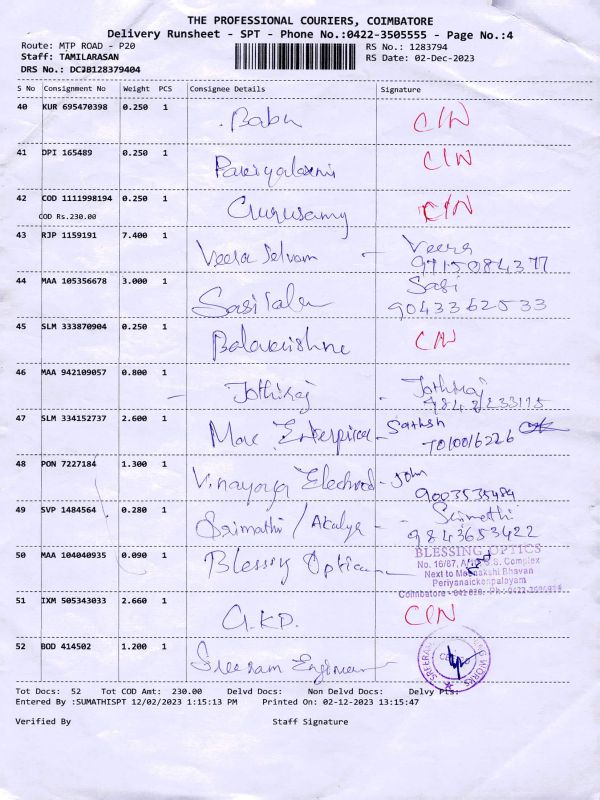 THE PROFESSIONAL COURIERS, COIMBATORE
Delivery Runsheet - SPT - Phone No.:0422-3505555 - Page No.:4
Route: MTP ROAD - P20 RS No.: 1283794
Staff: TAMILARASAN RS Date: 02-Dec-2023
DRS No.: DCJB128379404
S No Consignment No Weight PCS Consignee Details Signature
40 KUR 695470398 0.250 1 Babu C/N
41 DPI 165489 0.250 1 C/N
42 COD 1111998194 0.250 1 Gurusamy C/N
COD Rs.230.00
43 RJP 1159191 7.400 1 Veera Selvam - Veera
9715084377
44 MAA 105356678 3.000 1 Sasi
9043362533
45 SLM 333870904 0.250 1 Balakrishne C/N
46 MAA 942109057 0.800 1 - Jothiraj - Jothiraj
47 SLM 334152737 2.600 1 - Sathish
48 PON 7227184 1.300 1 Vinayaga Electrod - John
9003535484
49 SVP 1484564 0.280 1 Srimathi / Akalya - Srimathi
9843653422
50 MAA 104040935 0.090 1 Blessing Optican
BLESSING OPTICS
No. 16/87, S.S. Complex
Next to Meenakshi Bhavan
Periyanaickenpalayam
Coimbatore - 641 020. Ph : 0422
51 IXM 505343033 2.660 1 G.K.P. C/N
52 BOD 414502 1.200 1 Sreeram Engineer
Tot Docs: 52 Tot COD Amt: 230.00 Delvd Docs: Non Delvd Docs: Delvy Pts:
Entered By :SUMATHISPT 12/02/2023 1:15:13 PM Printed On: 02-12-2023 13:15:47
Verified By Staff Signature